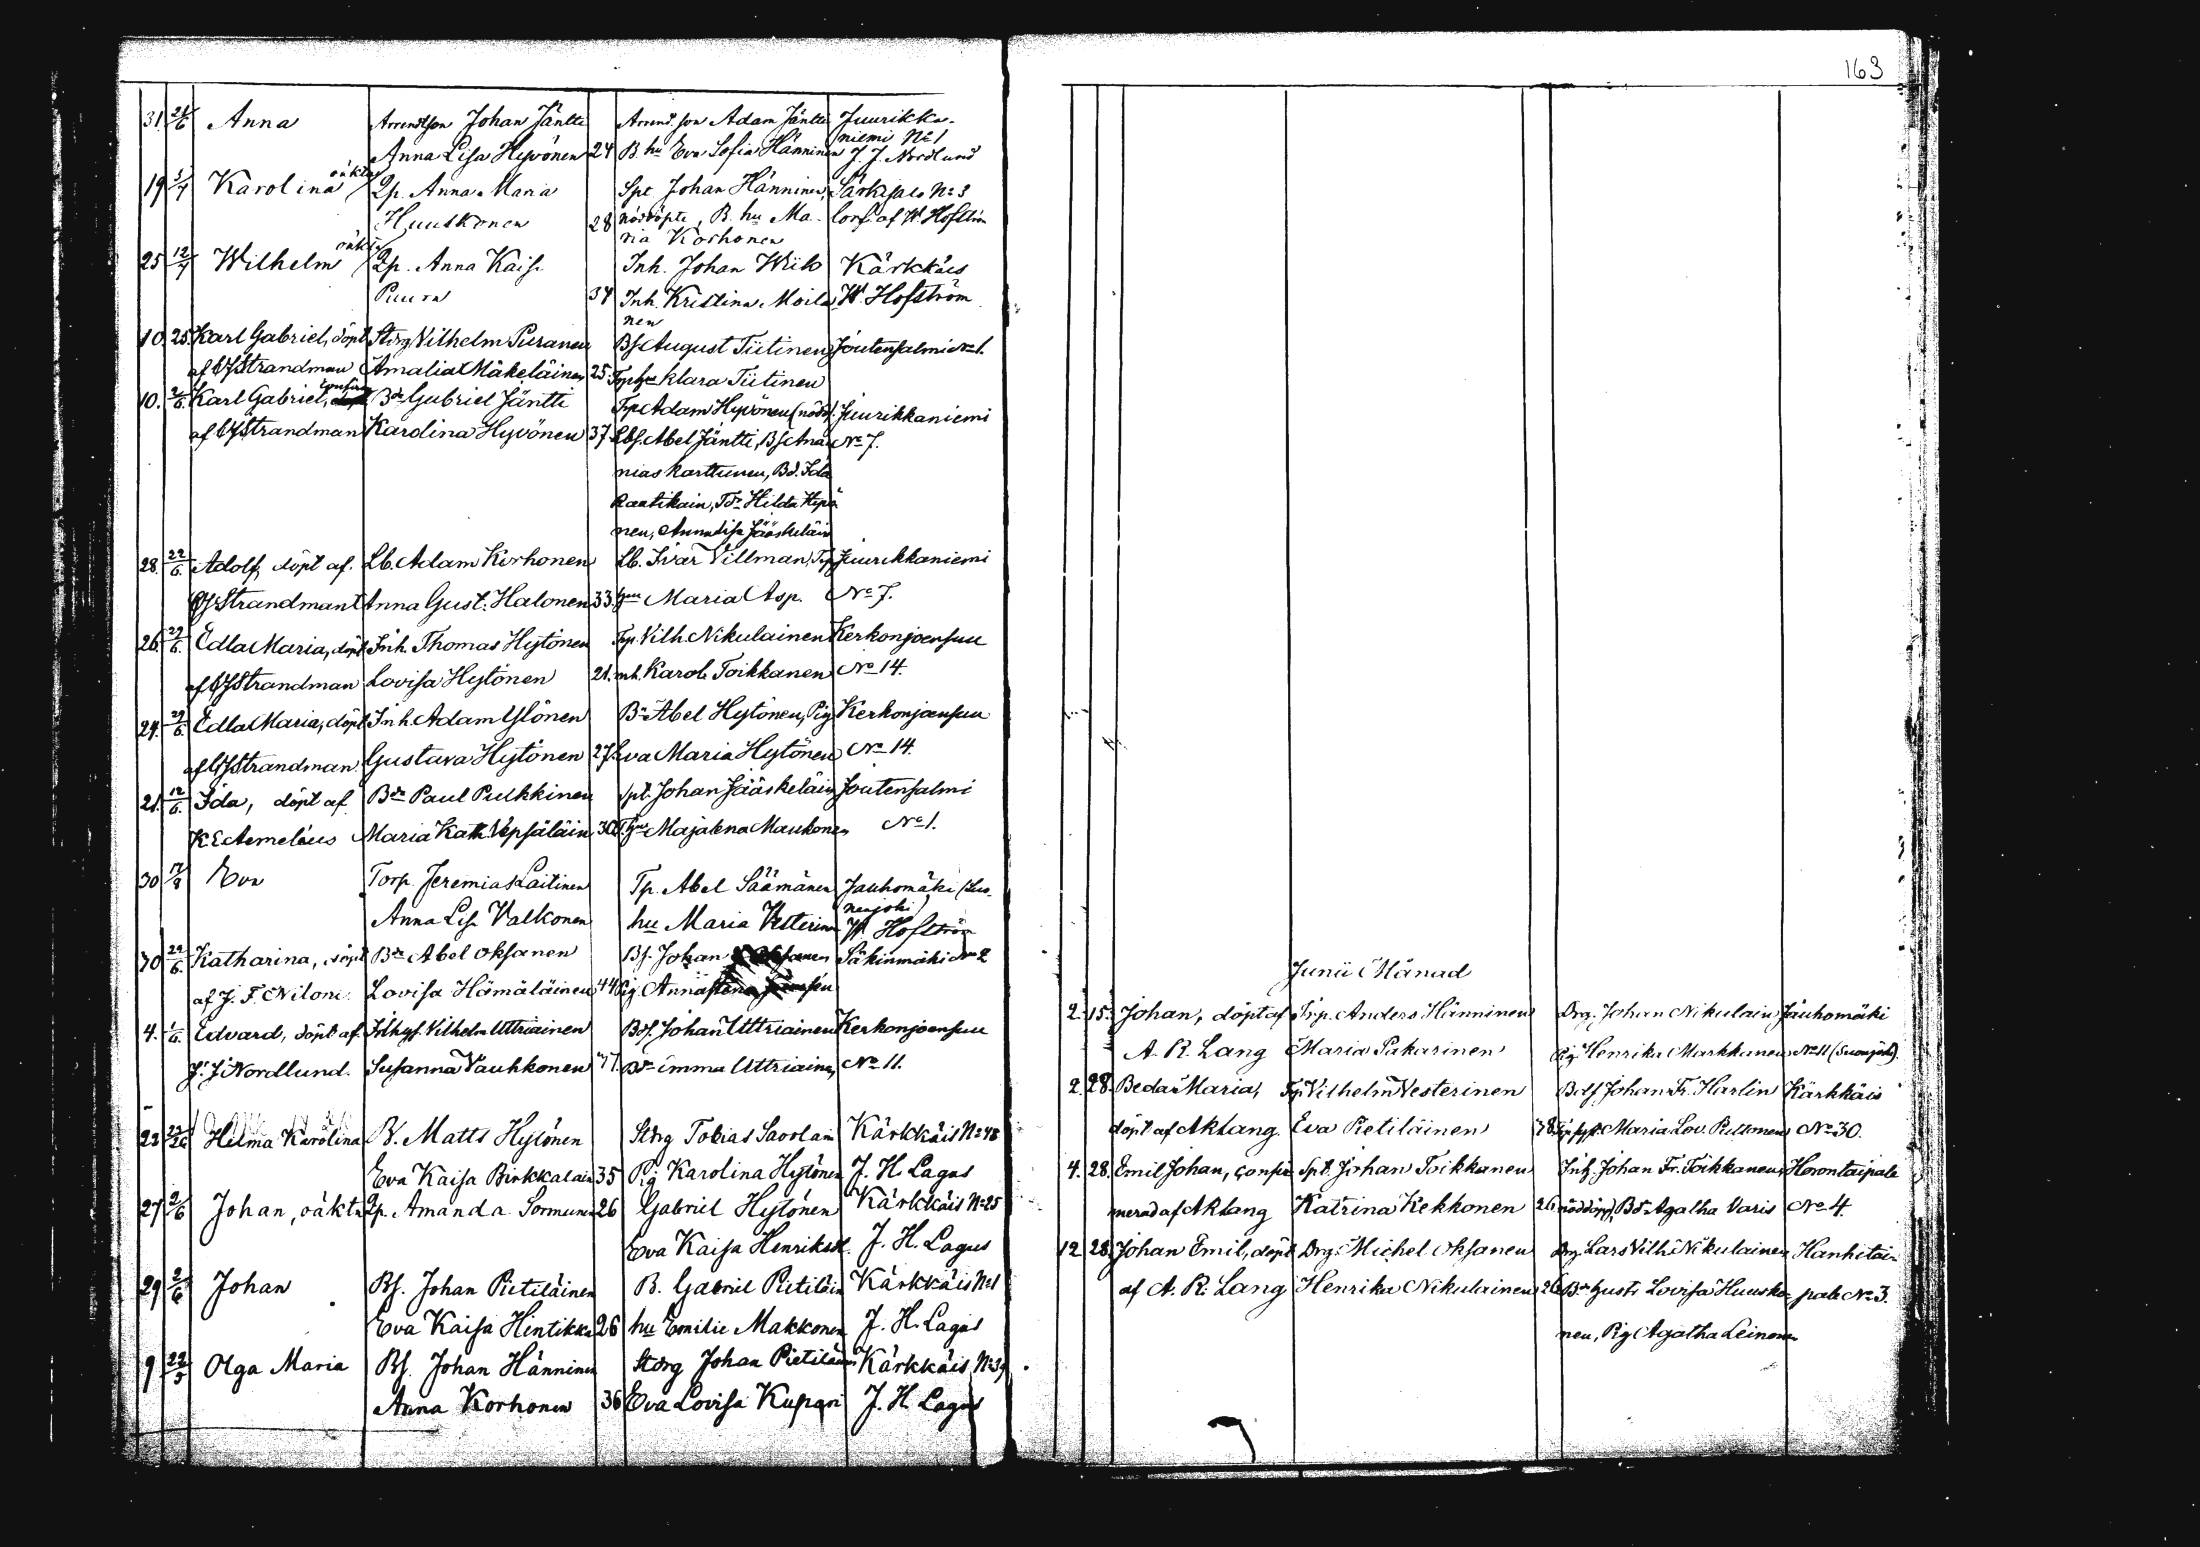 163
31. 21/6 Anna Arrendtson Johan Jäntti Arrend. son Adam Jäntti Juurikka-
niemi No 1
Anna Lisa Hyvönen 24 B. hu Eva Sofia Hänninen J. J. Nordlund
19 5/7 Karolina oäkta Qp. Anna Maria Spt Johan Hänninen, Särkisalo No 3
Huuskonen 28 nöddöpte, B. hu Ma- conf. af W. Hofström
ria Korhonen
25 12/7 Wilhelm oäkta Qp. Anna Kaisa Inh. Johan Kärkkäis
Puura 34 Inh. Kristina Moila W. Hofström
nen
10. 25. Karl Gabriel, döpt Stdrg Vilhelm Puranen Bs August Tiitinen Joutensalmi No 1.
af Strandman Amalia Mäkeläinen 25 Klara Tiitinen
10. 2/6. Karl Gabriel, confirm Bde Gabriel Jäntti Trp Adam Hyvönen (nödd). Juurikkaniemi
af Strandman Karolina Hyvönen 37 Lbs. Abel Jäntti, Bs Ana- No 7.
nias Karttunen, Bd. Ida
Raatikain, Tdr Hilda Hyvö
nen, Annalisa Jääskeläin
28. 22/6. Adolf, döpt af. Lb. Adam Korhonen Lb. Ivar Villman, Trp Juurikkaniemi
Strandman Anna Gust. Halonen 33. hu Maria Asp. No 7.
26. 29/6. Edla Maria, döpt Inh. Thomas Hytönen Trp. Vilh Nikulainen Kerkonjoensuu
af Strandman Lovisa Hytönen 21. inh. Karol. Toikkanen No 14.
24. 29/6. Edla Maria, döpt Inh. Adam Ylönen Bn Abel Hytönen, Pig Kerkonjoensuu
af Strandman. Gustava Hytönen 27. Eva Maria Hytönen No 14.
21. 12/6. Ida, döpt af Bde Paul Pulkkinen Spt. Johan Jääskeläin Joutensalmi
K. E. Aemeléus Maria Kath. Vepsäläin 30. Majalena Maukonen No 1.
30 17/8 Eva Torp. Jeremias Laitinen Tp. Abel Säämänen Jauhomäki (Lus-
nenjoki)
Anna Lis. Valkonen hu Maria Vesterinen W. Hofström
30 22/6. Katharina, döpt Bde Abel Oksanen Bs. Johan Säkinmäki No 2
af J. F. Niloni. Lovisa Hämäläinen 44 Pig. Annastina
4. 1/6. Edvard, döpt af. Vilhelm Uttriainen Bds. Johan Uttriainen Kerkonjoensuu
J. J. Nordlund. Susanna Vauhkonen 77. Bdr Emma Uttriainen, No 11.
22 Helma Karolina B. Matts Hytönen Stdrg Tobias Savolain Kärkkäis No 48
Eva Kaisa Pirkkalain 35 Pig Karolina Hytönen J. H. Lagus
27 2/6 Johan, oäkta Qp. Amanda Sormunen 26 Gabriel Hytönen Kärkkäis No 25
Eva Kaisa Henriksd. J. H. Lagus
29 2/6 Johan Bs. Johan Pietiläinen B. Gabriel Pietiläin Kärkkäis No 1
Eva Kaisa Hintikka 26 hu Emilie Makkonen J. H. Lagus
9 22/5 Olga Maria Bs. Johan Hänninen Stdrg Johan Pietiläinen Kärkkäis No 39
Anna Korhonen 36 Eva Lovisa Kupari J. H. Lagus
Junii Månad
2. 15. Johan, döpt af Trp. Anders Hänninen Drg. Johan Nikulain Jauhomäki
A. R. Lang Maria Pakarinen Pig Henrika Markkanen No 11 (Suonjoki).
2. 28. Beda Maria, Trp Vilhelm Vesterinen Bdf. Johan Fr. Harlin Kärkkäis
döpt af A R Lang. Eva Pietiläinen 38. Maria Lov. Pulkonen No 30.
4. 28. Emil Johan, confir Spt. Johan Toikkanen Inh. Johan Fr. Toikkanen Horontaipale
merad af A R Lang Katrina Kekkonen 26 nöddöpt, Bdr Agatha Varis No 4.
12. 28. Johan Emil, döpt Drg. Michel Oksanen Drg. Lars Vilh. Nikulainen Hanhitai-
af A. R. Lang Henrika Nikulainen 26. Bdr Gustr Lovisa Huusko- pale No 3.
nen, Pig Agatha Leinonen